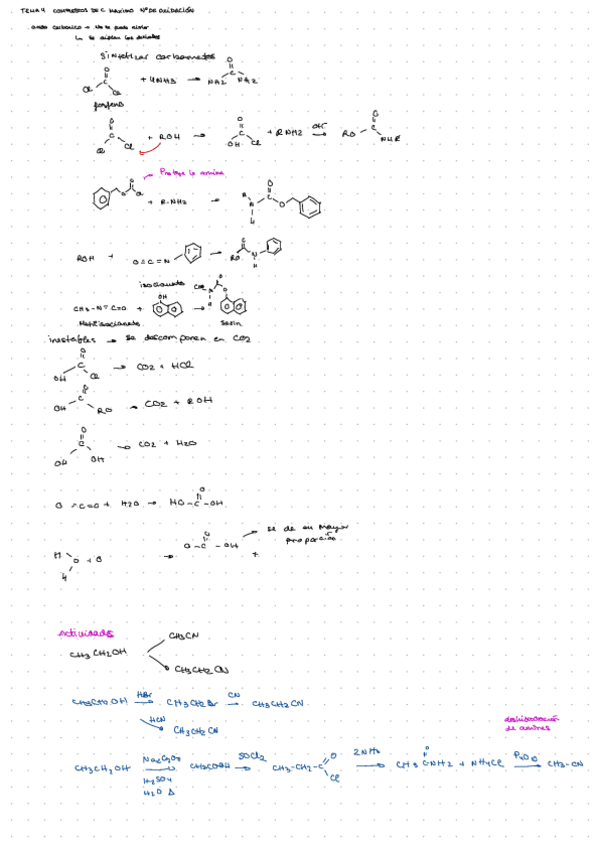 TEMA 4 COMPUESTOS DE C MAXIMO Nº DE OXIDACIÓN
ácido carbónico → No se puede aislar
se aislan los derivados
Sintetizar carbamatos
O
Cl Cl + 4NH3 → O NH2 NH2
fosfeno
O
Cl Cl + ROH → O OH Cl + RNH2 OH- → O RO NHR
Protege la amina
O O Cl + R-NH2 → R N H O O
ROH + O=C=N → O RO N H
isocianato
CH3-N=C=O + OH →
Metilisocianato Sevin
inestables → se descomponen en CO2
O OH Cl → CO2 + HCl
O OH RO → CO2 + ROH
O OH OH → CO2 + H2O
O=C=O + H2O → HO-C-OH O
H O + O H → O-C-OH O → se da en mayor proporción
+
Actividades
CH3CH2OH CH3CN
CH3CH2CN
CH3CH2OH HBr → CH3CH2Br CN → CH3CH2CN
HCN CH3CH2CN
deshidratación de amidas
CH3CH2OH H2SO4 H2O Δ → CH3COOH SOCl2 → CH3-CH2-C O Cl 2NH3 → CH3 C O NH2 + NH4Cl → CH3-CN